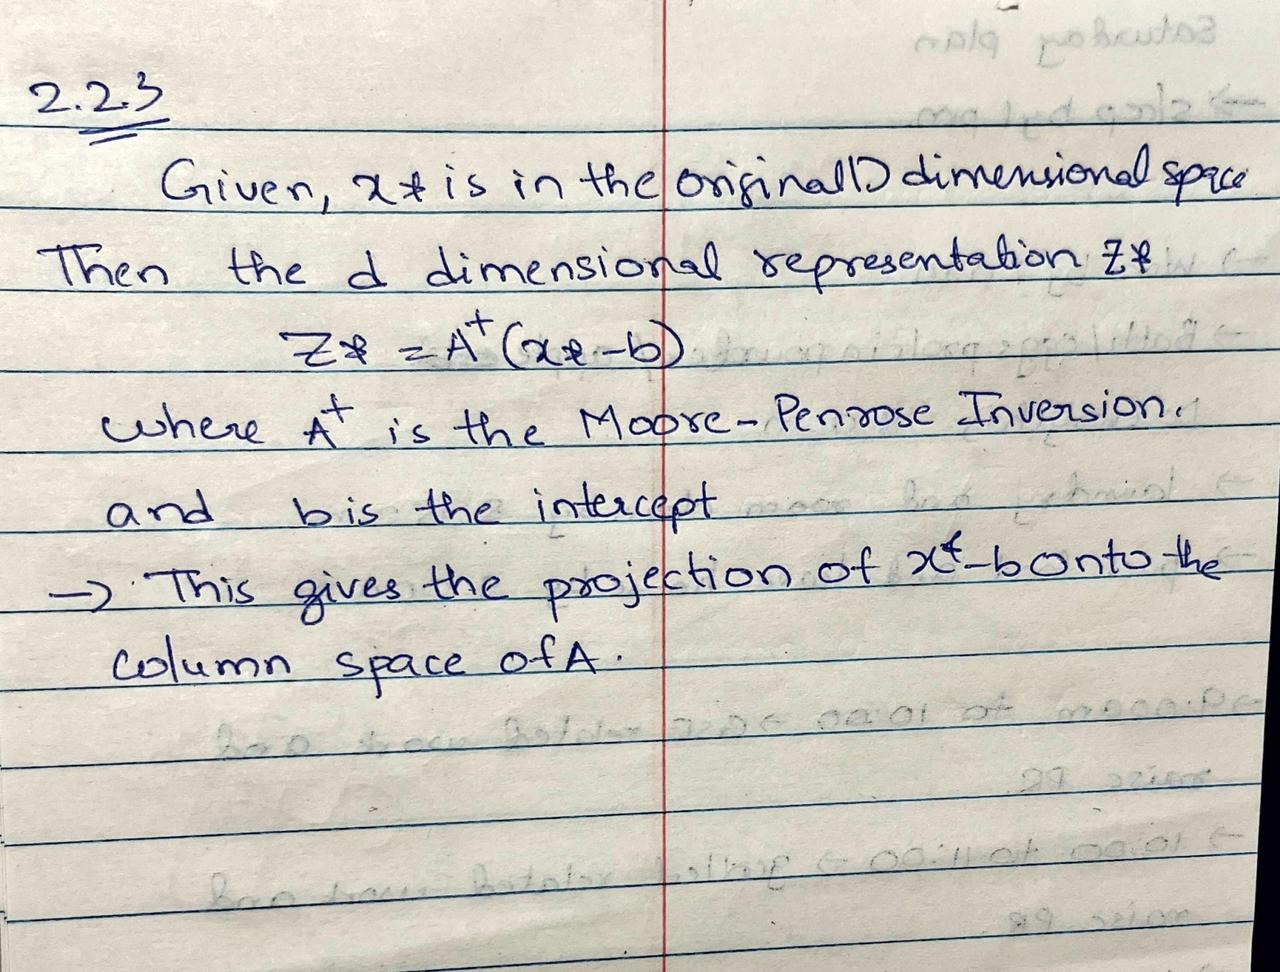 2.2.3
Given, x* is in the original D dimensional space
Then the d dimensional representation z*
z* = A⁺(x*-b)
where A⁺ is the Moore-Penrose Inversion.
and b is the intercept
→ This gives the projection of x*-b onto the
column space of A.